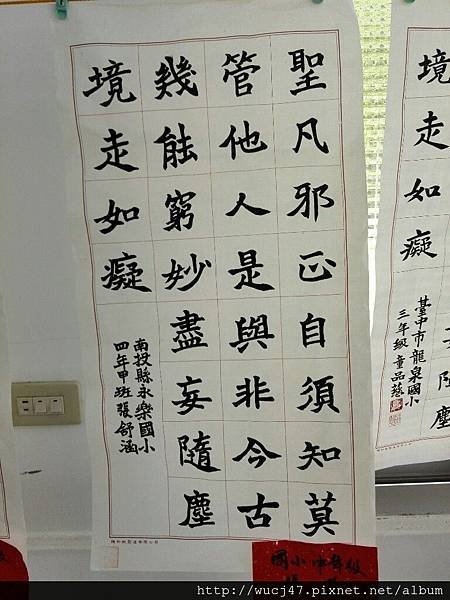 聖凡邪正自須知莫
管他人是與非今古
幾能窮妙盡妄隨塵
境走如癡
南投縣永樂國小
四年甲班張舒涵
隨塵
境走如癡
臺中市龍泉國小
三年級童品慈
國小中年級
http://wucj47.pixnet.net/album